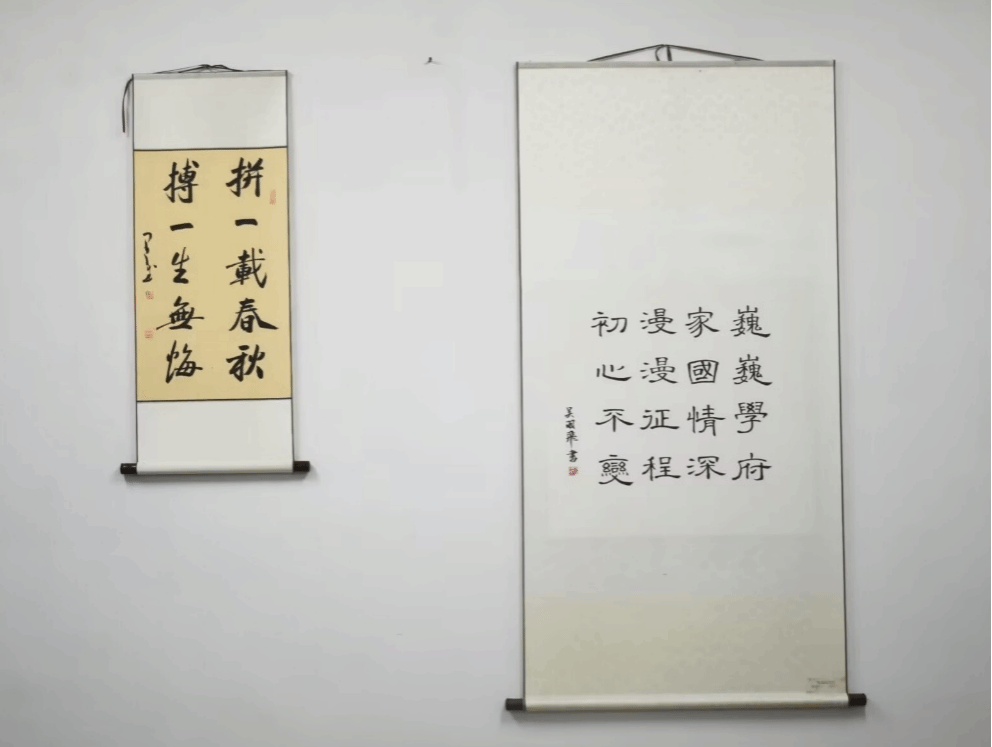 拼一載春秋
搏一生無悔
巍巍學府
家國情深
漫漫征程
初心不變